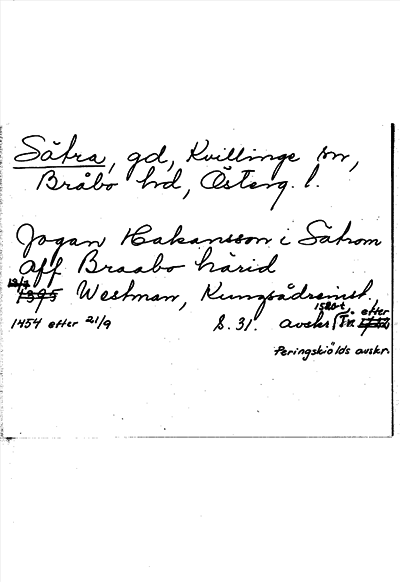 Sätra, gd, Kvillinge sn,
Bråbo hd, Österg. l.
Jogan Hakansson i Satrom
aff Braabo härid
1395 Westman, Kungsådreinst.,
1454 efter 21/9 S. 31. avskr
efter
Peringskiölds avskr.